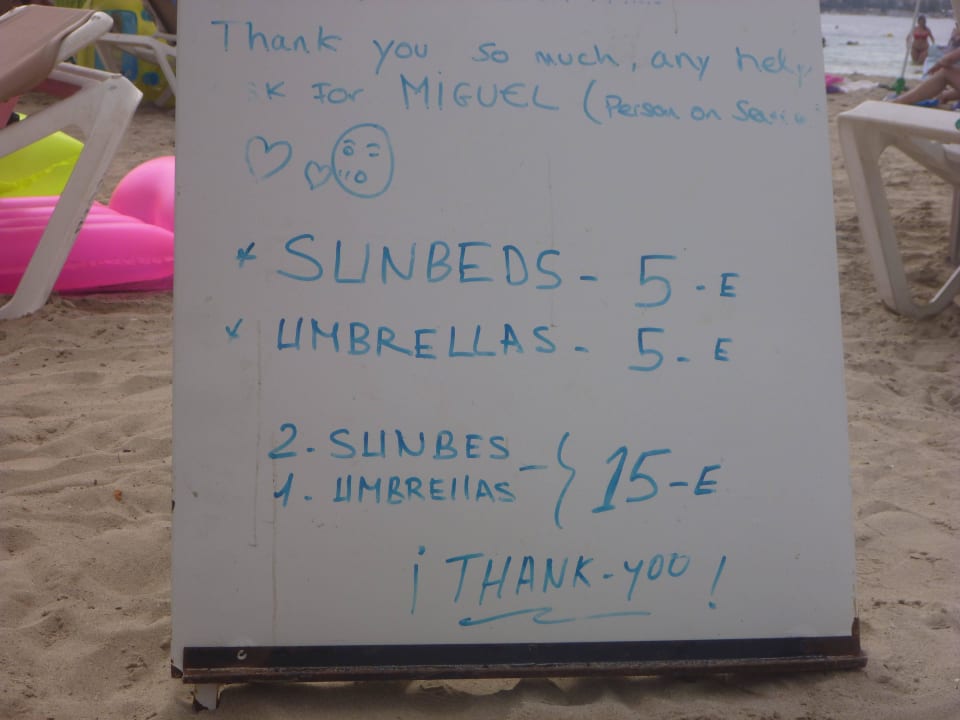 Thank you so much, any help
sk For MIGUEL (Person on
* SUNBEDS - 5 - E
* UMBRELLAS - 5 - E
2. SUNBES
1. UMBRELLAS - } 15 - E
¡ THANK-YOO !